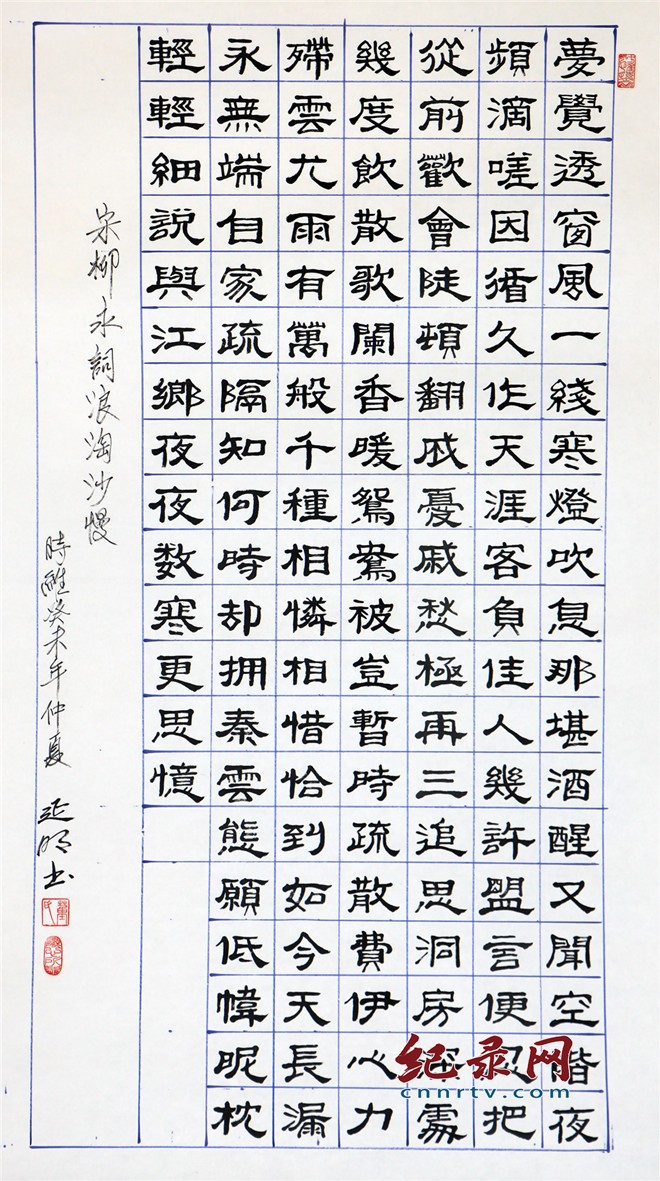 夢覺透窗風一綫寒燈吹息那堪酒醒又聞空階夜
頻滴嗟因循久作天涯客負佳人幾許盟言便忍把
從前歡會陡頓翻成憂戚愁極再三追思洞房深處
幾度飲散歌闌香暖鴛鴦被豈暫時疏散費伊心力
殢雲尤雨有萬般千種相憐相惜恰到如今天長漏
永無端自家疏隔知何時却拥秦雲態願低幃昵枕
輕輕細説與江鄉夜夜数寒更思憶
宋柳永詞浪淘沙慢
時維癸未年仲夏 延明书
纪录网
cnnrtv.com